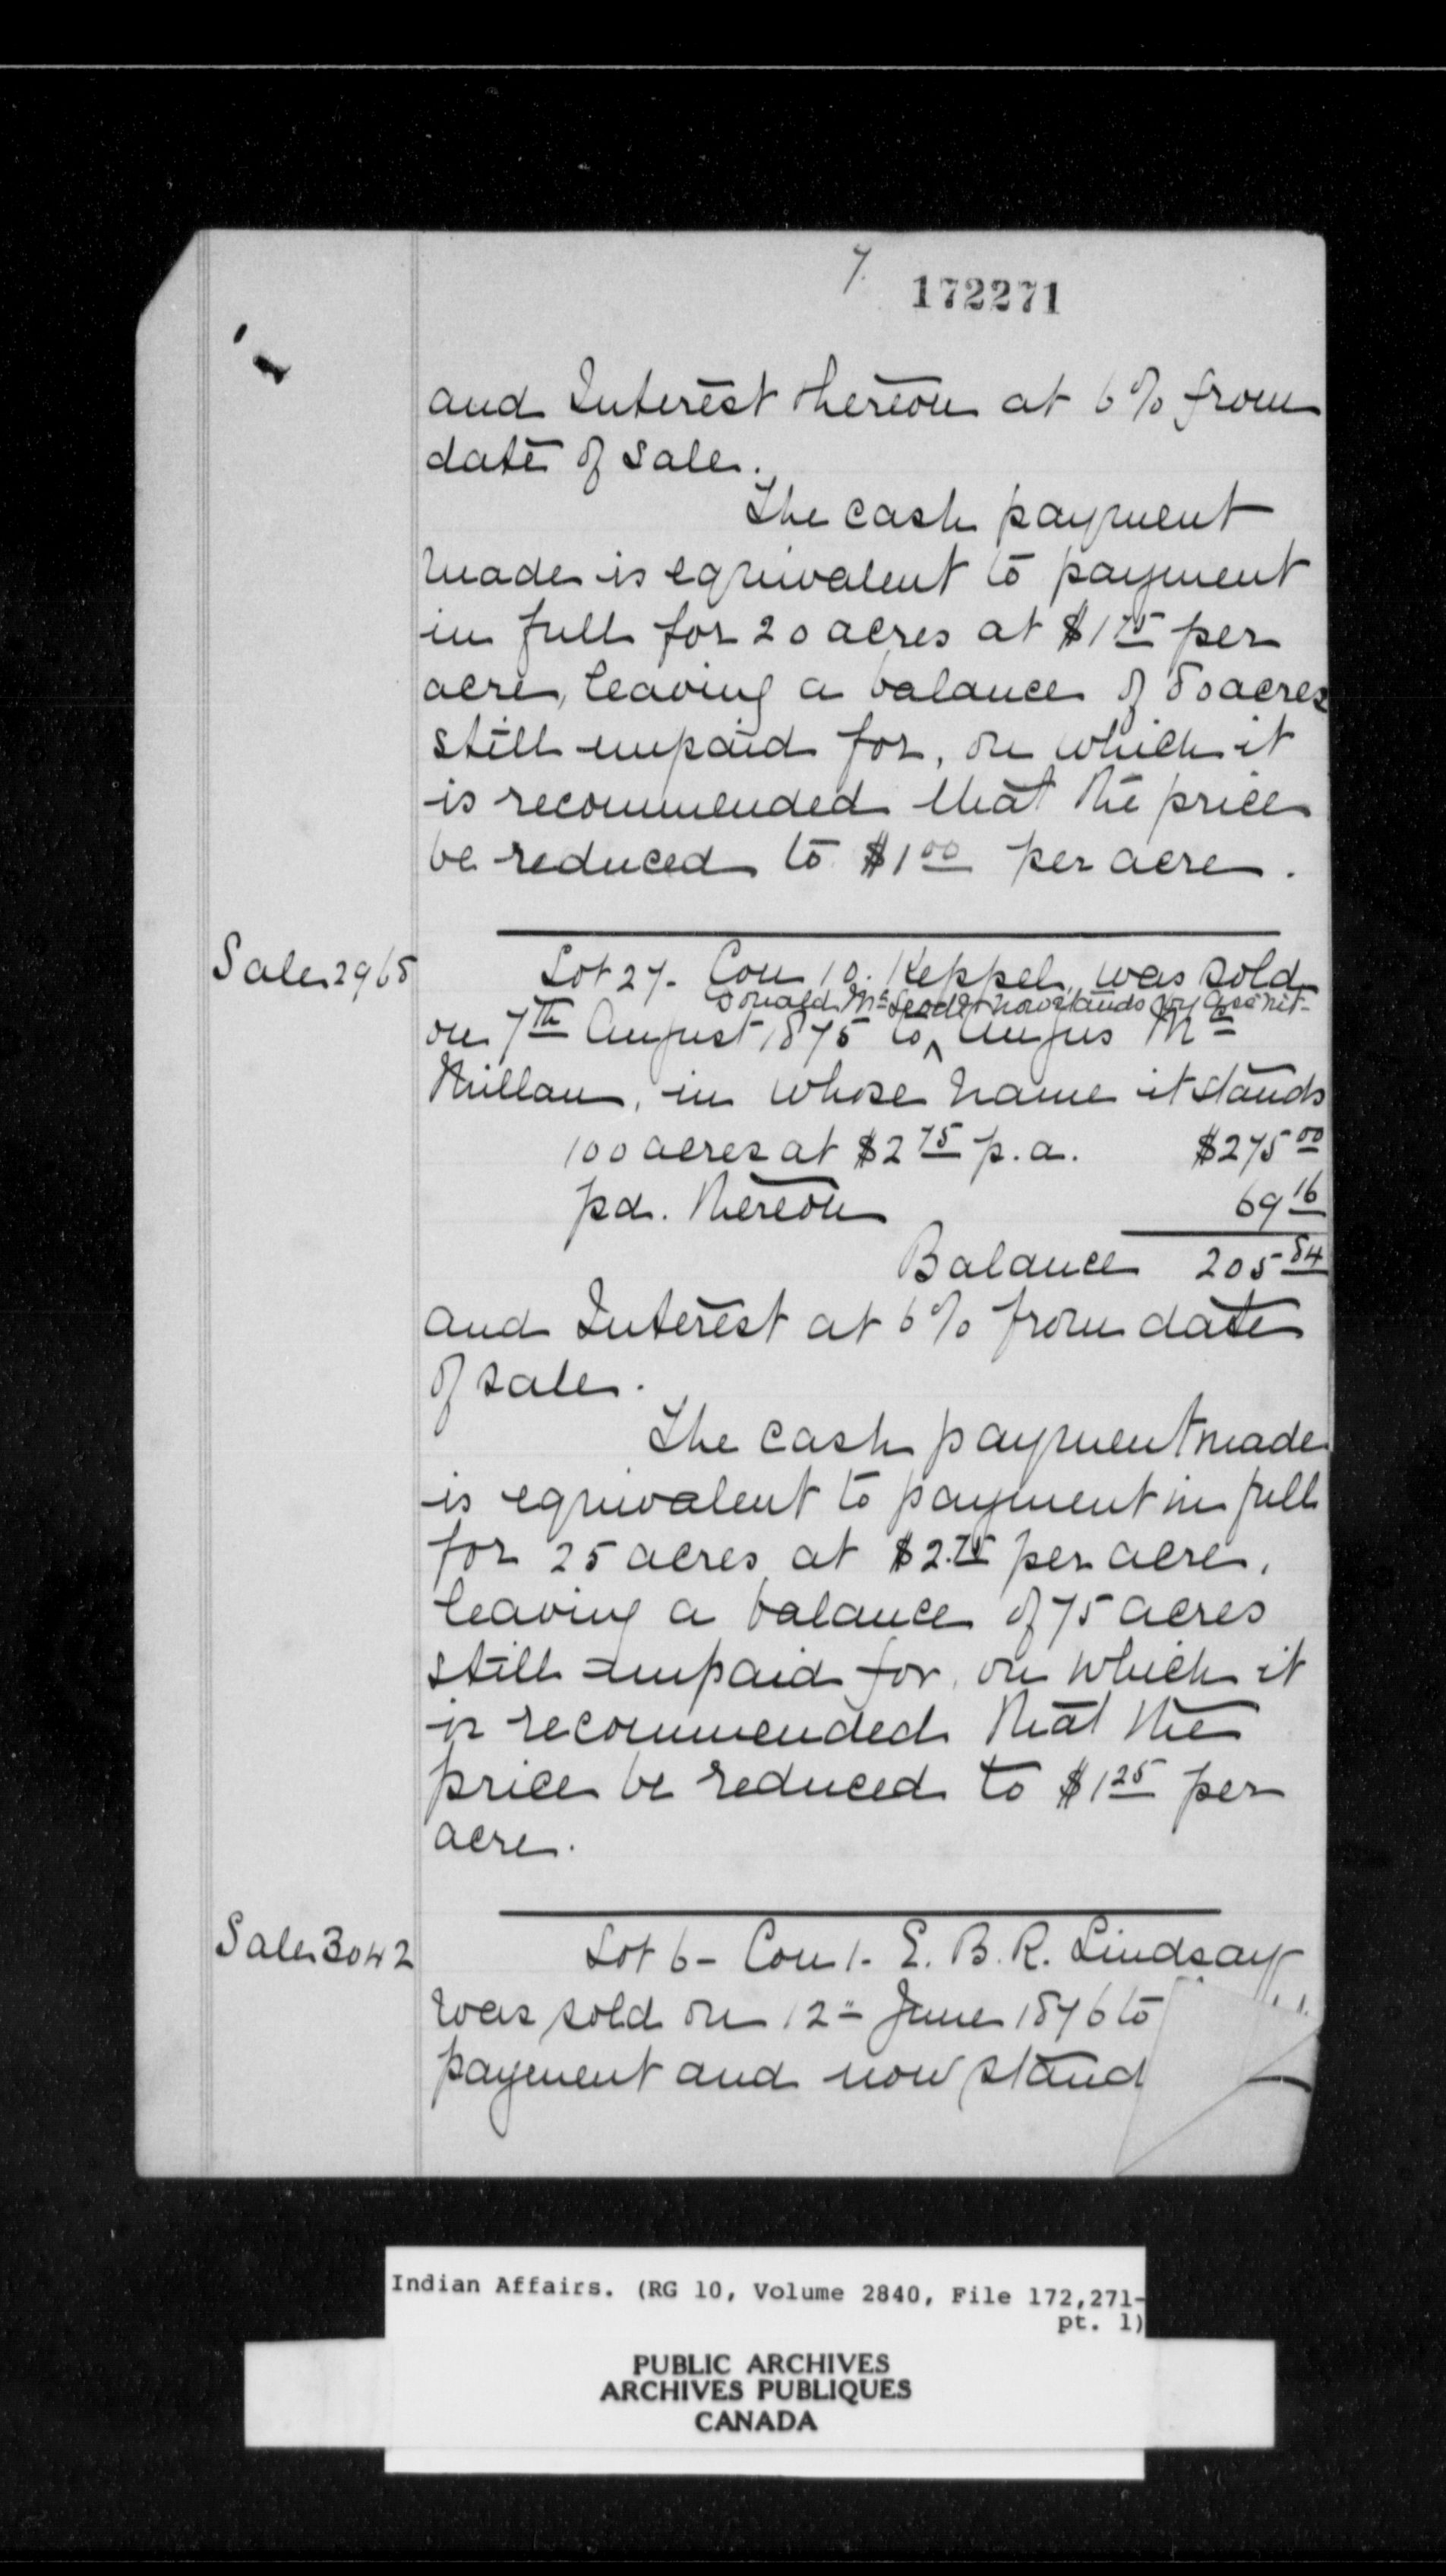 7.
172271
and Interest thereon at 6% from
date of sale.
The cash payment
made is equivalent to payment
in full for 20 acres at $1 75 per
acre, leaving a balance of 80 acres
still unpaid for, on which it
is recommended that the price
be reduced to $1 00 per acre.
Sale 2965
Lot 27. Con 10. Keppel, was sold
Donald McLeod & now stands by Assn't
on 7th August 1875 to ^ Angus Mc
Millan, in whose name it stands
100 acres at $2 75 p.a. $275 00
pd. thereon 69 16
Balance 205 84
and Interest at 6% from date
of sale.
The cash payment made
is equivalent to payment in full
for 25 acres at $2.75 per acre,
leaving a balance of 75 acres
still unpaid for, on which it
is recommended that the
price be reduced to $1 25 per
acre.
Sale 3042
Lot 6 - Con 1. E. B. R. Lindsay
was sold on 12" June 1876 to
payment and now stand
Indian Affairs. (RG 10, Volume 2840, File 172,271-
pt. 1)
PUBLIC ARCHIVES
ARCHIVES PUBLIQUES
CANADA